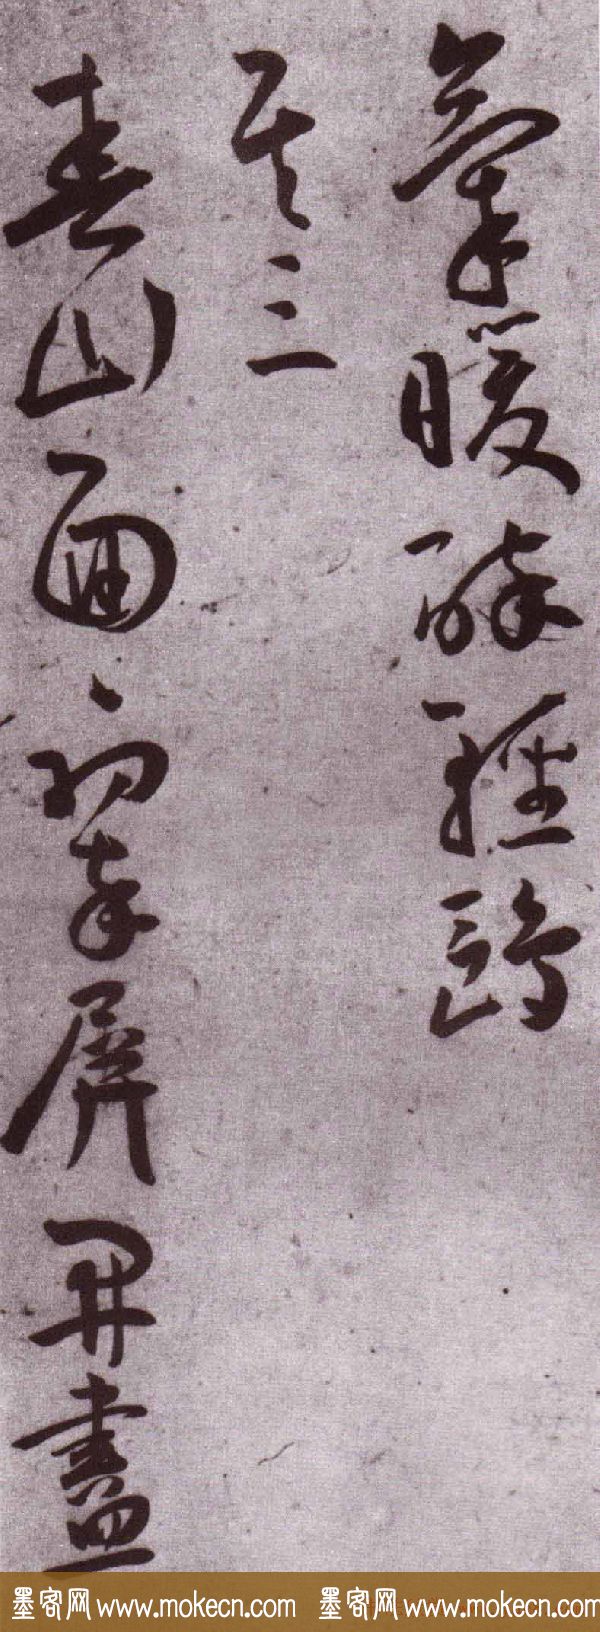 氣暖醉輕鷗
其三
春山面〻翠屏開盡
墨客网 www.mokecn.com 墨客网 www.mokecn.com